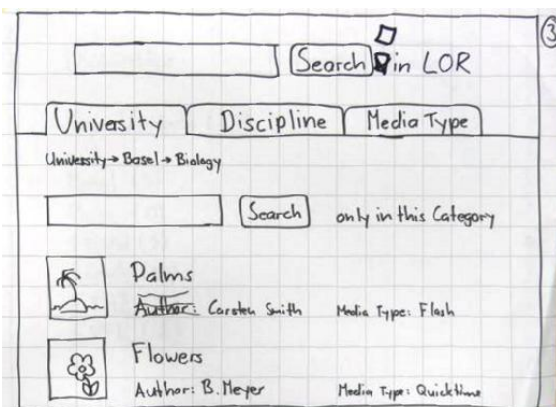 3
Search in LOR
University Discipline Media Type
University → Basel → Biology
Search only in this Category
Palms
Author: Carsten Smith Media Type: Flash
Flowers
Author: B. Meyer Media Type: Quicktime